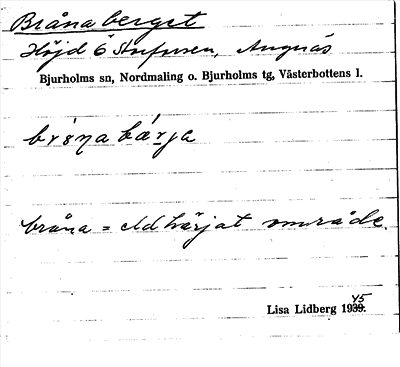 Brånaberget
Höjd Ö Stoforsen, Angnäs
Bjurholms sn, Nordmaling o. Bjurholms tg, Västerbottens l.
brånabärja
bråna = eldhärjat område.
Lisa Lidberg 1945